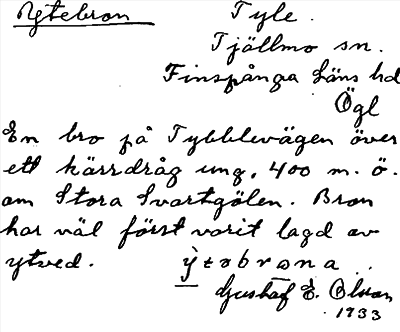 Ytebron Tyle.
Tjällmo sn.
Finspånga läns hd
Ögl
En bro på Tybblevägen över
ett kärrdråg ung. 400 m. ö.
om Stora Svartgölen. Bron
har väl först varit lagd av
ytved. ỳtəbrəna..
Gustaf E. Olson
1933